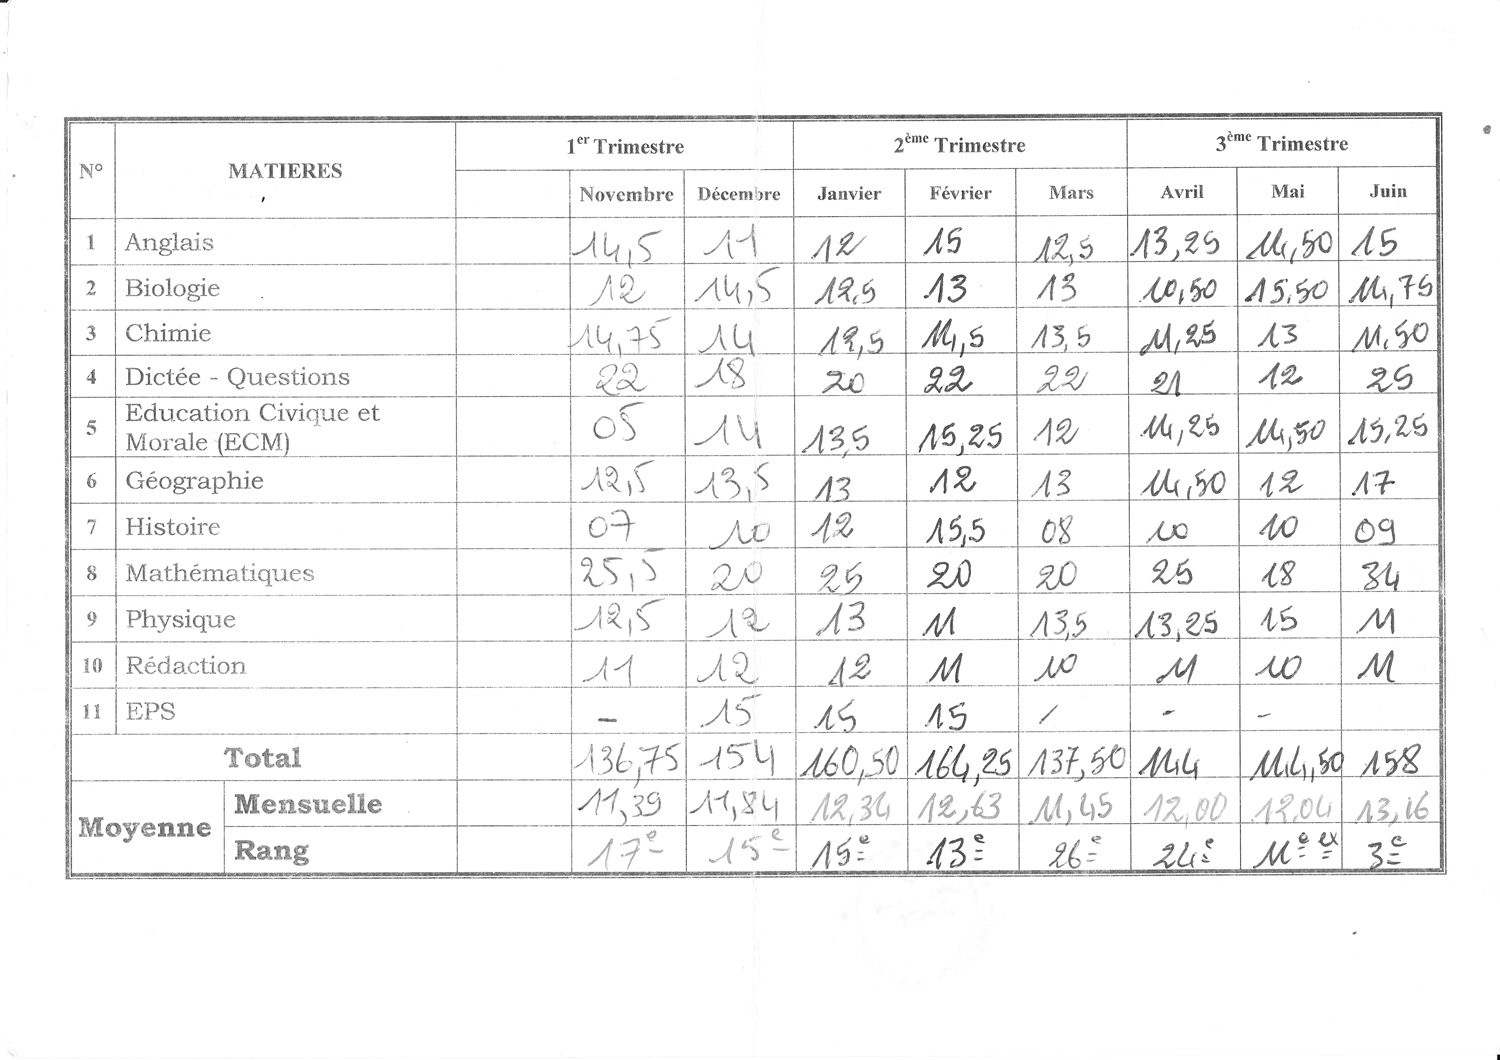 N° MATIERES 1er Trimestre 2ème Trimestre 3ème Trimestre
Novembre Décembre Janvier Février Mars Avril Mai Juin
1 Anglais 14,5 11 12 15 12,5 13,25 14,50 15
2 Biologie 12 14,5 12,5 13 13 10,50 15,50 14,75
3 Chimie 14,75 14 12,5 14,5 13,5 11,25 13 11,50
4 Dictée - Questions 22 18 20 22 22 21 12 25
5 Education Civique et
Morale (ECM) 05 14 13,5 15,25 12 14,25 14,50 15,25
6 Géographie 12,5 13,5 13 12 13 14,50 12 17
7 Histoire 07 10 12 15,5 08 10 10 09
8 Mathématiques 25,5 20 25 20 20 25 18 34
9 Physique 12,5 12 13 11 13,5 13,25 15 11
10 Rédaction 11 12 12 11 10 11 10 11
11 EPS - 15 15 15 / - -
Total 136,75 154 160,50 164,25 137,50 144 144,50 158
Moyenne Mensuelle 11,39 11,84 12,34 12,63 11,45 12,00 12,04 13,16
Rang 17e 15e 15e 13e 26e 24e 11e ex 3e